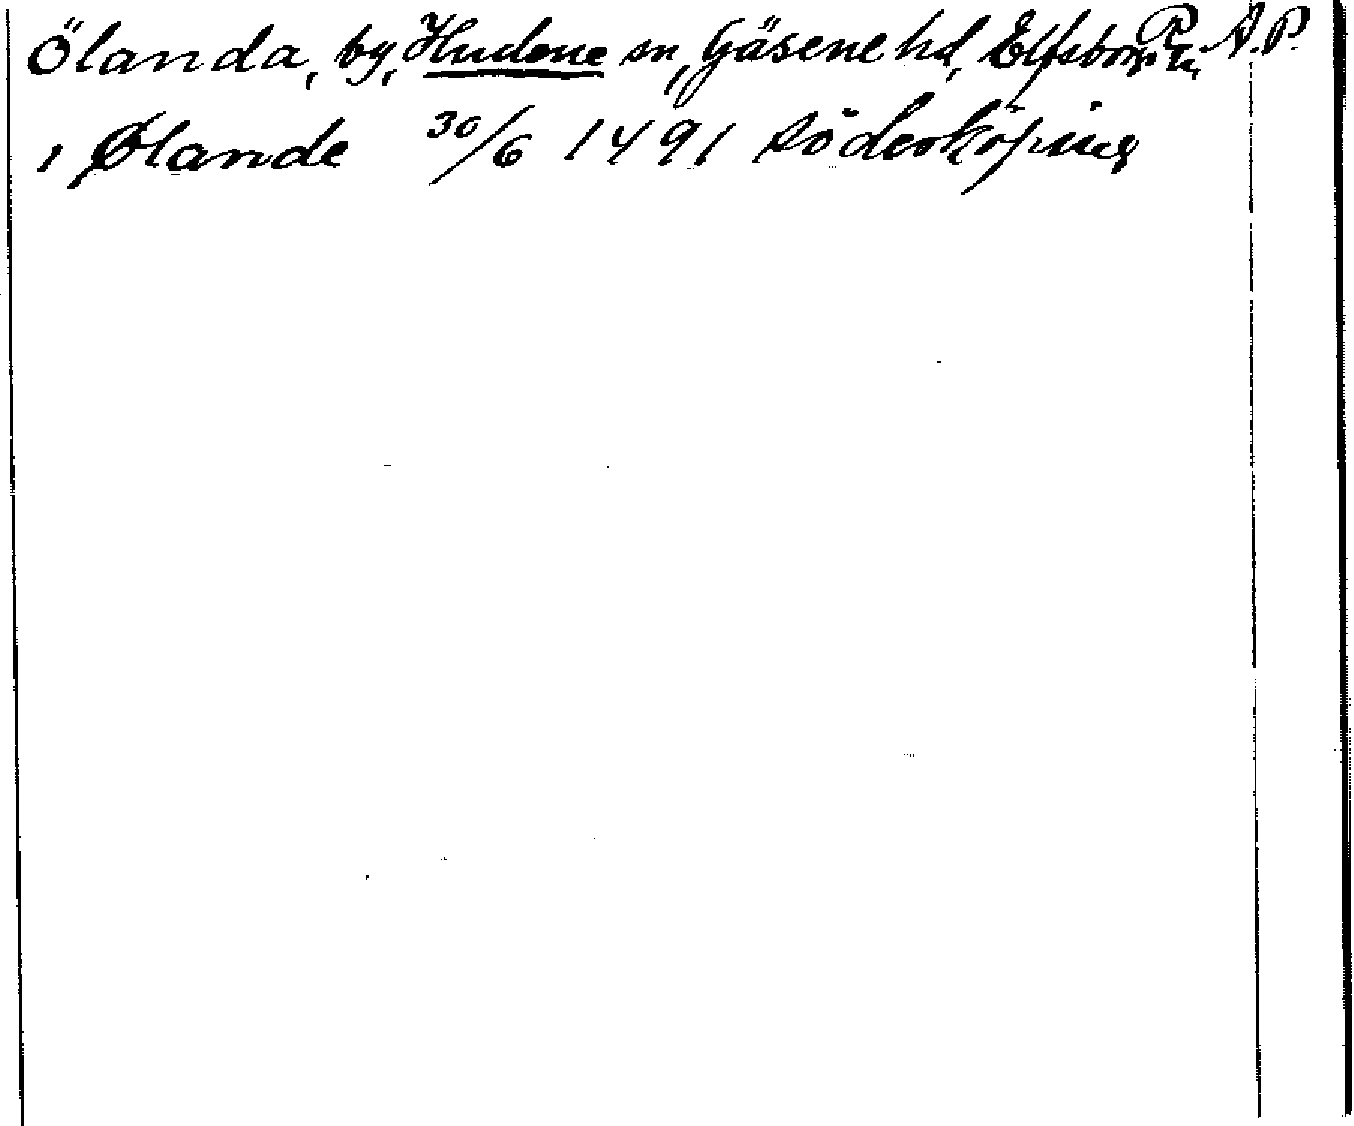 Ölanda, by, Hudene sn, Gäsene hd, Elfsborgs l. P. A.P.
, Ølande 30/6 1491 Söderköping